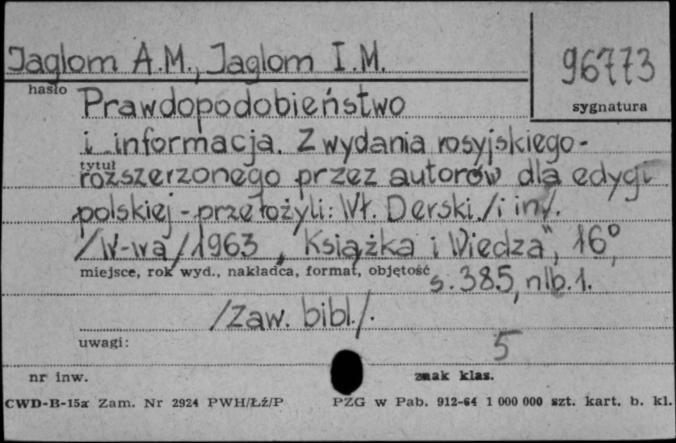 Jaglom A.M., Jaglom I.M.
96773
hasło
sygnatura
Prawdopodobieństwo
i informacja. Z wydania rosyjskiego -
tytuł
rozszerzonego przez autorów dla edycji
polskiej - przełożyli: Wł. Derski /i in/.
/W-wa/ 1963 „Książka i Wiedza", 16°,
miejsce, rok wyd., nakładca, format, objętość
s. 385, nlb. 1.
/Zaw. bibl./.
uwagi:
5
nr inw.
znak klas.
CWD-B-15a Zam. Nr 2924 PWH/Łź/P PZG w Pab. 912-64 1 000 000 szt. kart. b. kl.